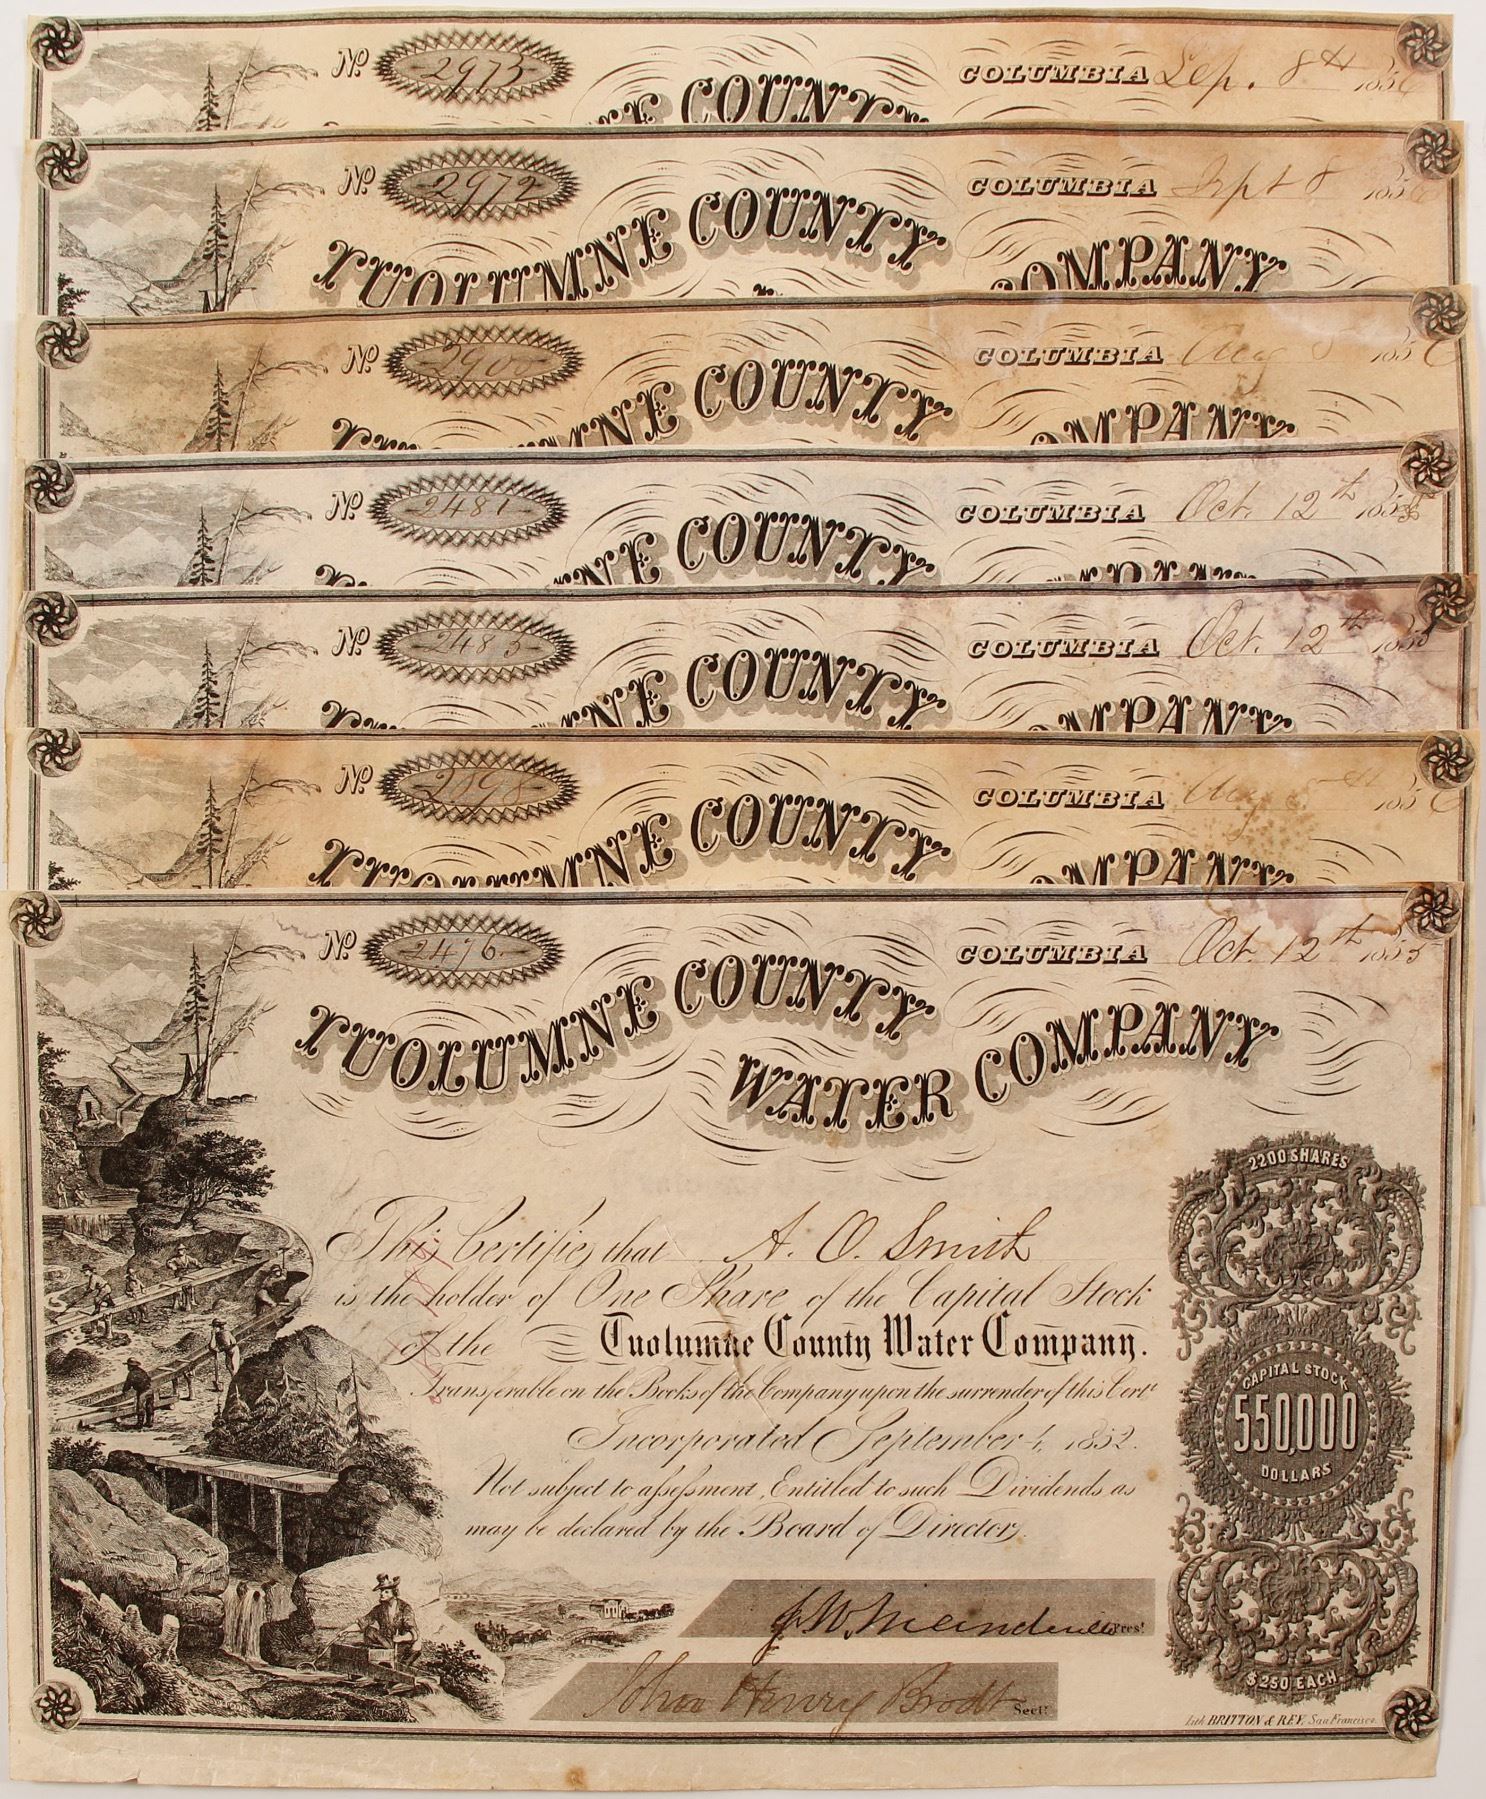 No. 2973 COLUMBIA Sep. 8th 1856
COUNTY
No. 2972 COLUMBIA Sept 8 1856
TUOLUMNE COUNTY COMPANY
No. 2900 COLUMBIA Aug 8 1856
COUNTY COMPANY
No. 2481 COLUMBIA Oct. 12th 1855
COUNTY
No. 2483 COLUMBIA Oct. 12th 1855
COUNTY COMPANY
No. 2898 COLUMBIA Aug 8th 1856
TUOLUMNE COUNTY COMPANY
No. 2476. COLUMBIA Oct. 12th 1855
TUOLUMNE COUNTY
WATER COMPANY
This Certifies that A. O. Smith
is the holder of One Share of the Capital Stock
of the Tuolumne County Water Company.
Transferable on the Books of the Company upon the surrender of this Cert.
Incorporated September 4, 1852.
Not subject to assessment, Entitled to such Dividends as
may be declared by the Board of Directors.
2200 SHARES
CAPITAL STOCK
550,000
DOLLARS
$250 EACH
Pres.t
John Henry Brodt Sect.
Lith. BRITTON & REY, San Francisco.